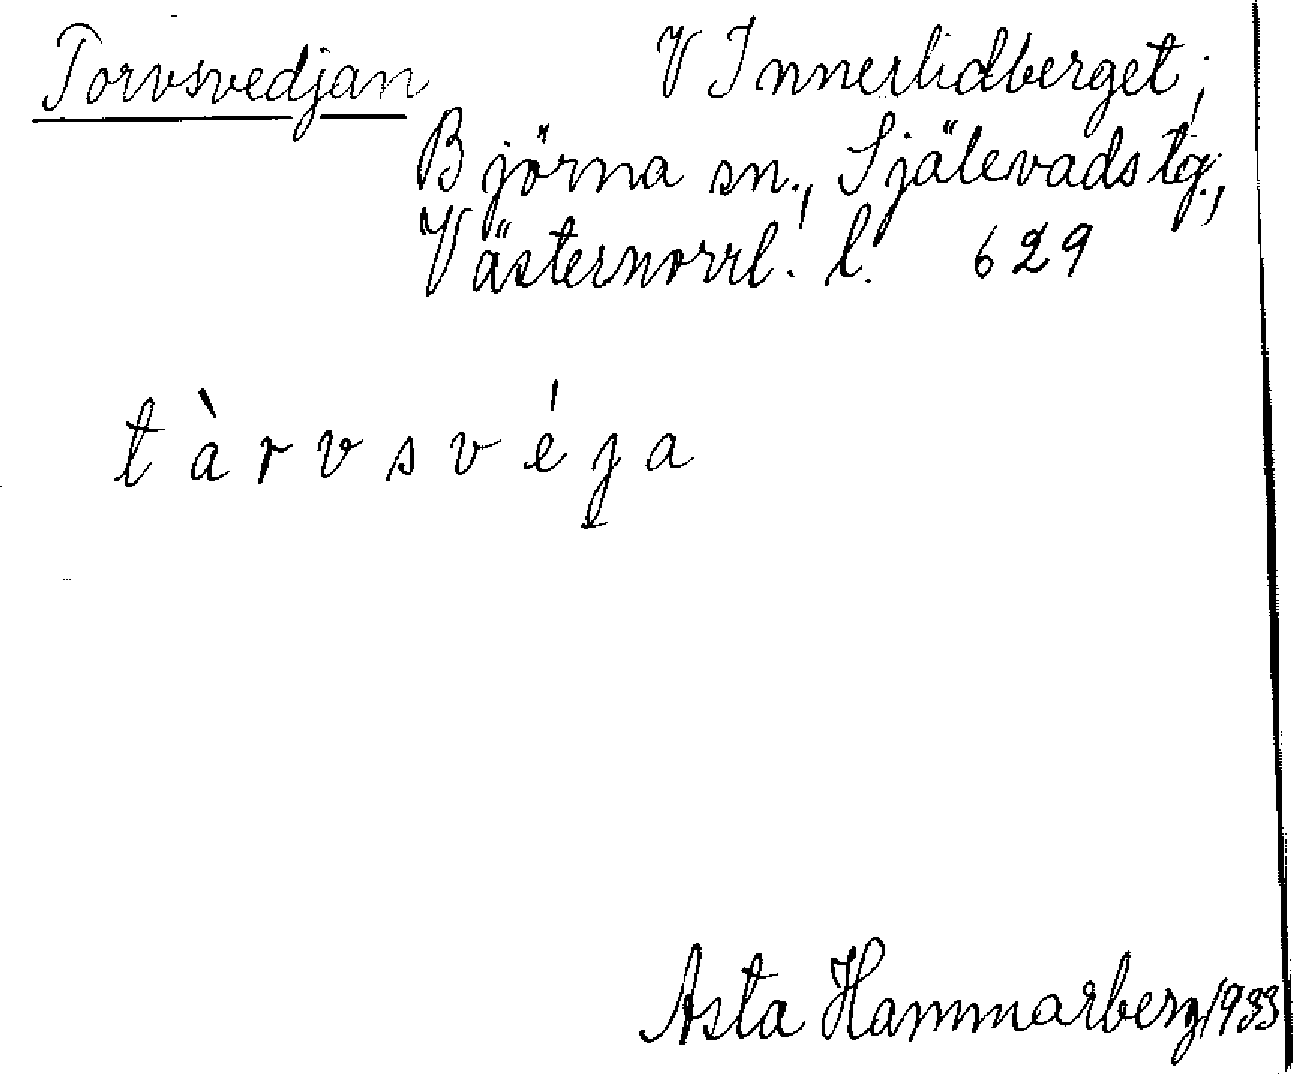 Torvsvedjan V Innerlidberget,
Björna sn., Själevads tg.,
Västernorrl. l. 629
tàrvsvéja
Asta Hammarberg 1933